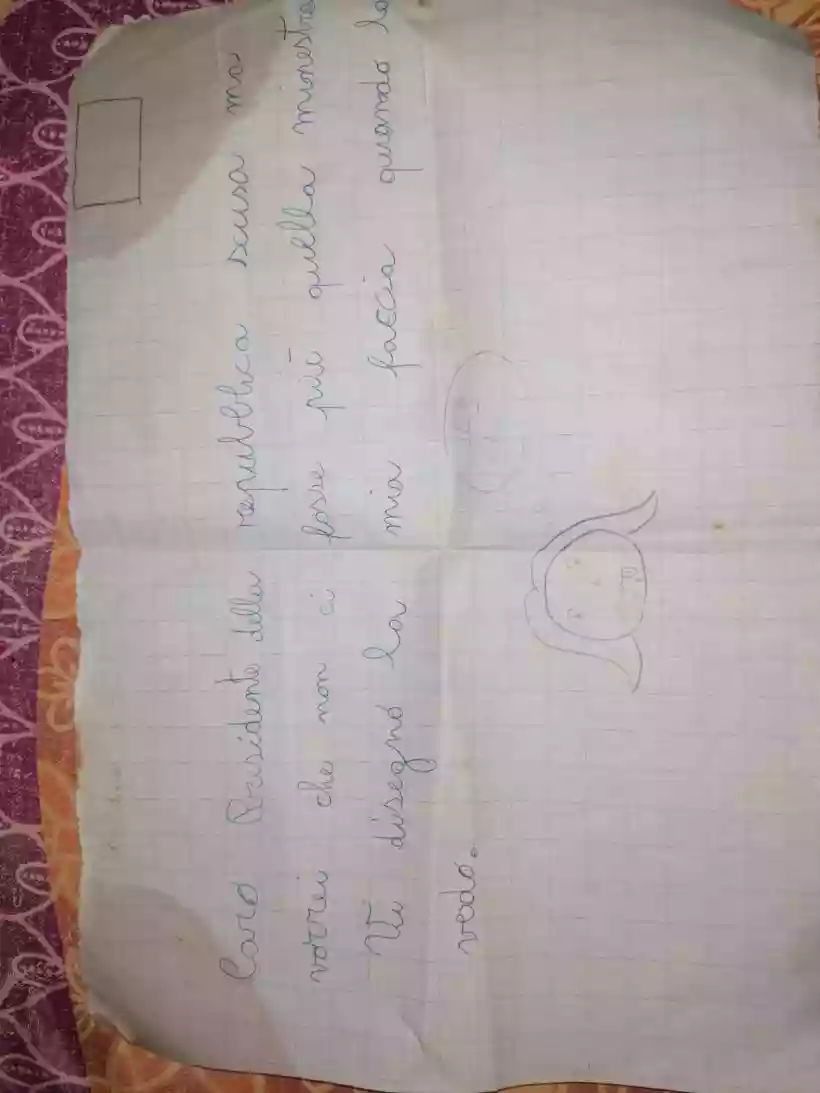 Caro Presidente della repubblica scusa ma
vorrei che non ci fosse più quella minestra
Vi disegno la mia faccia quando la
vedo.